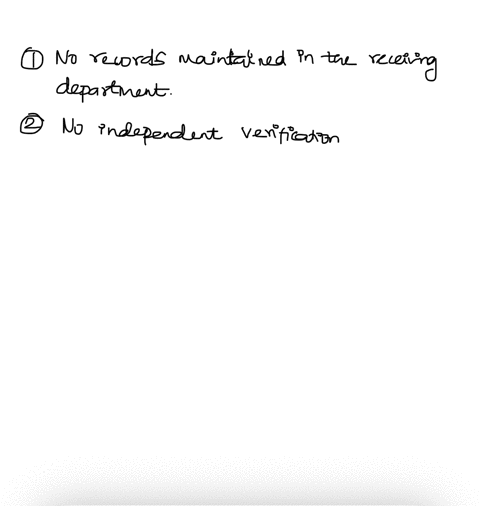 ① No records maintained in the receiving
department.
② No independent verification